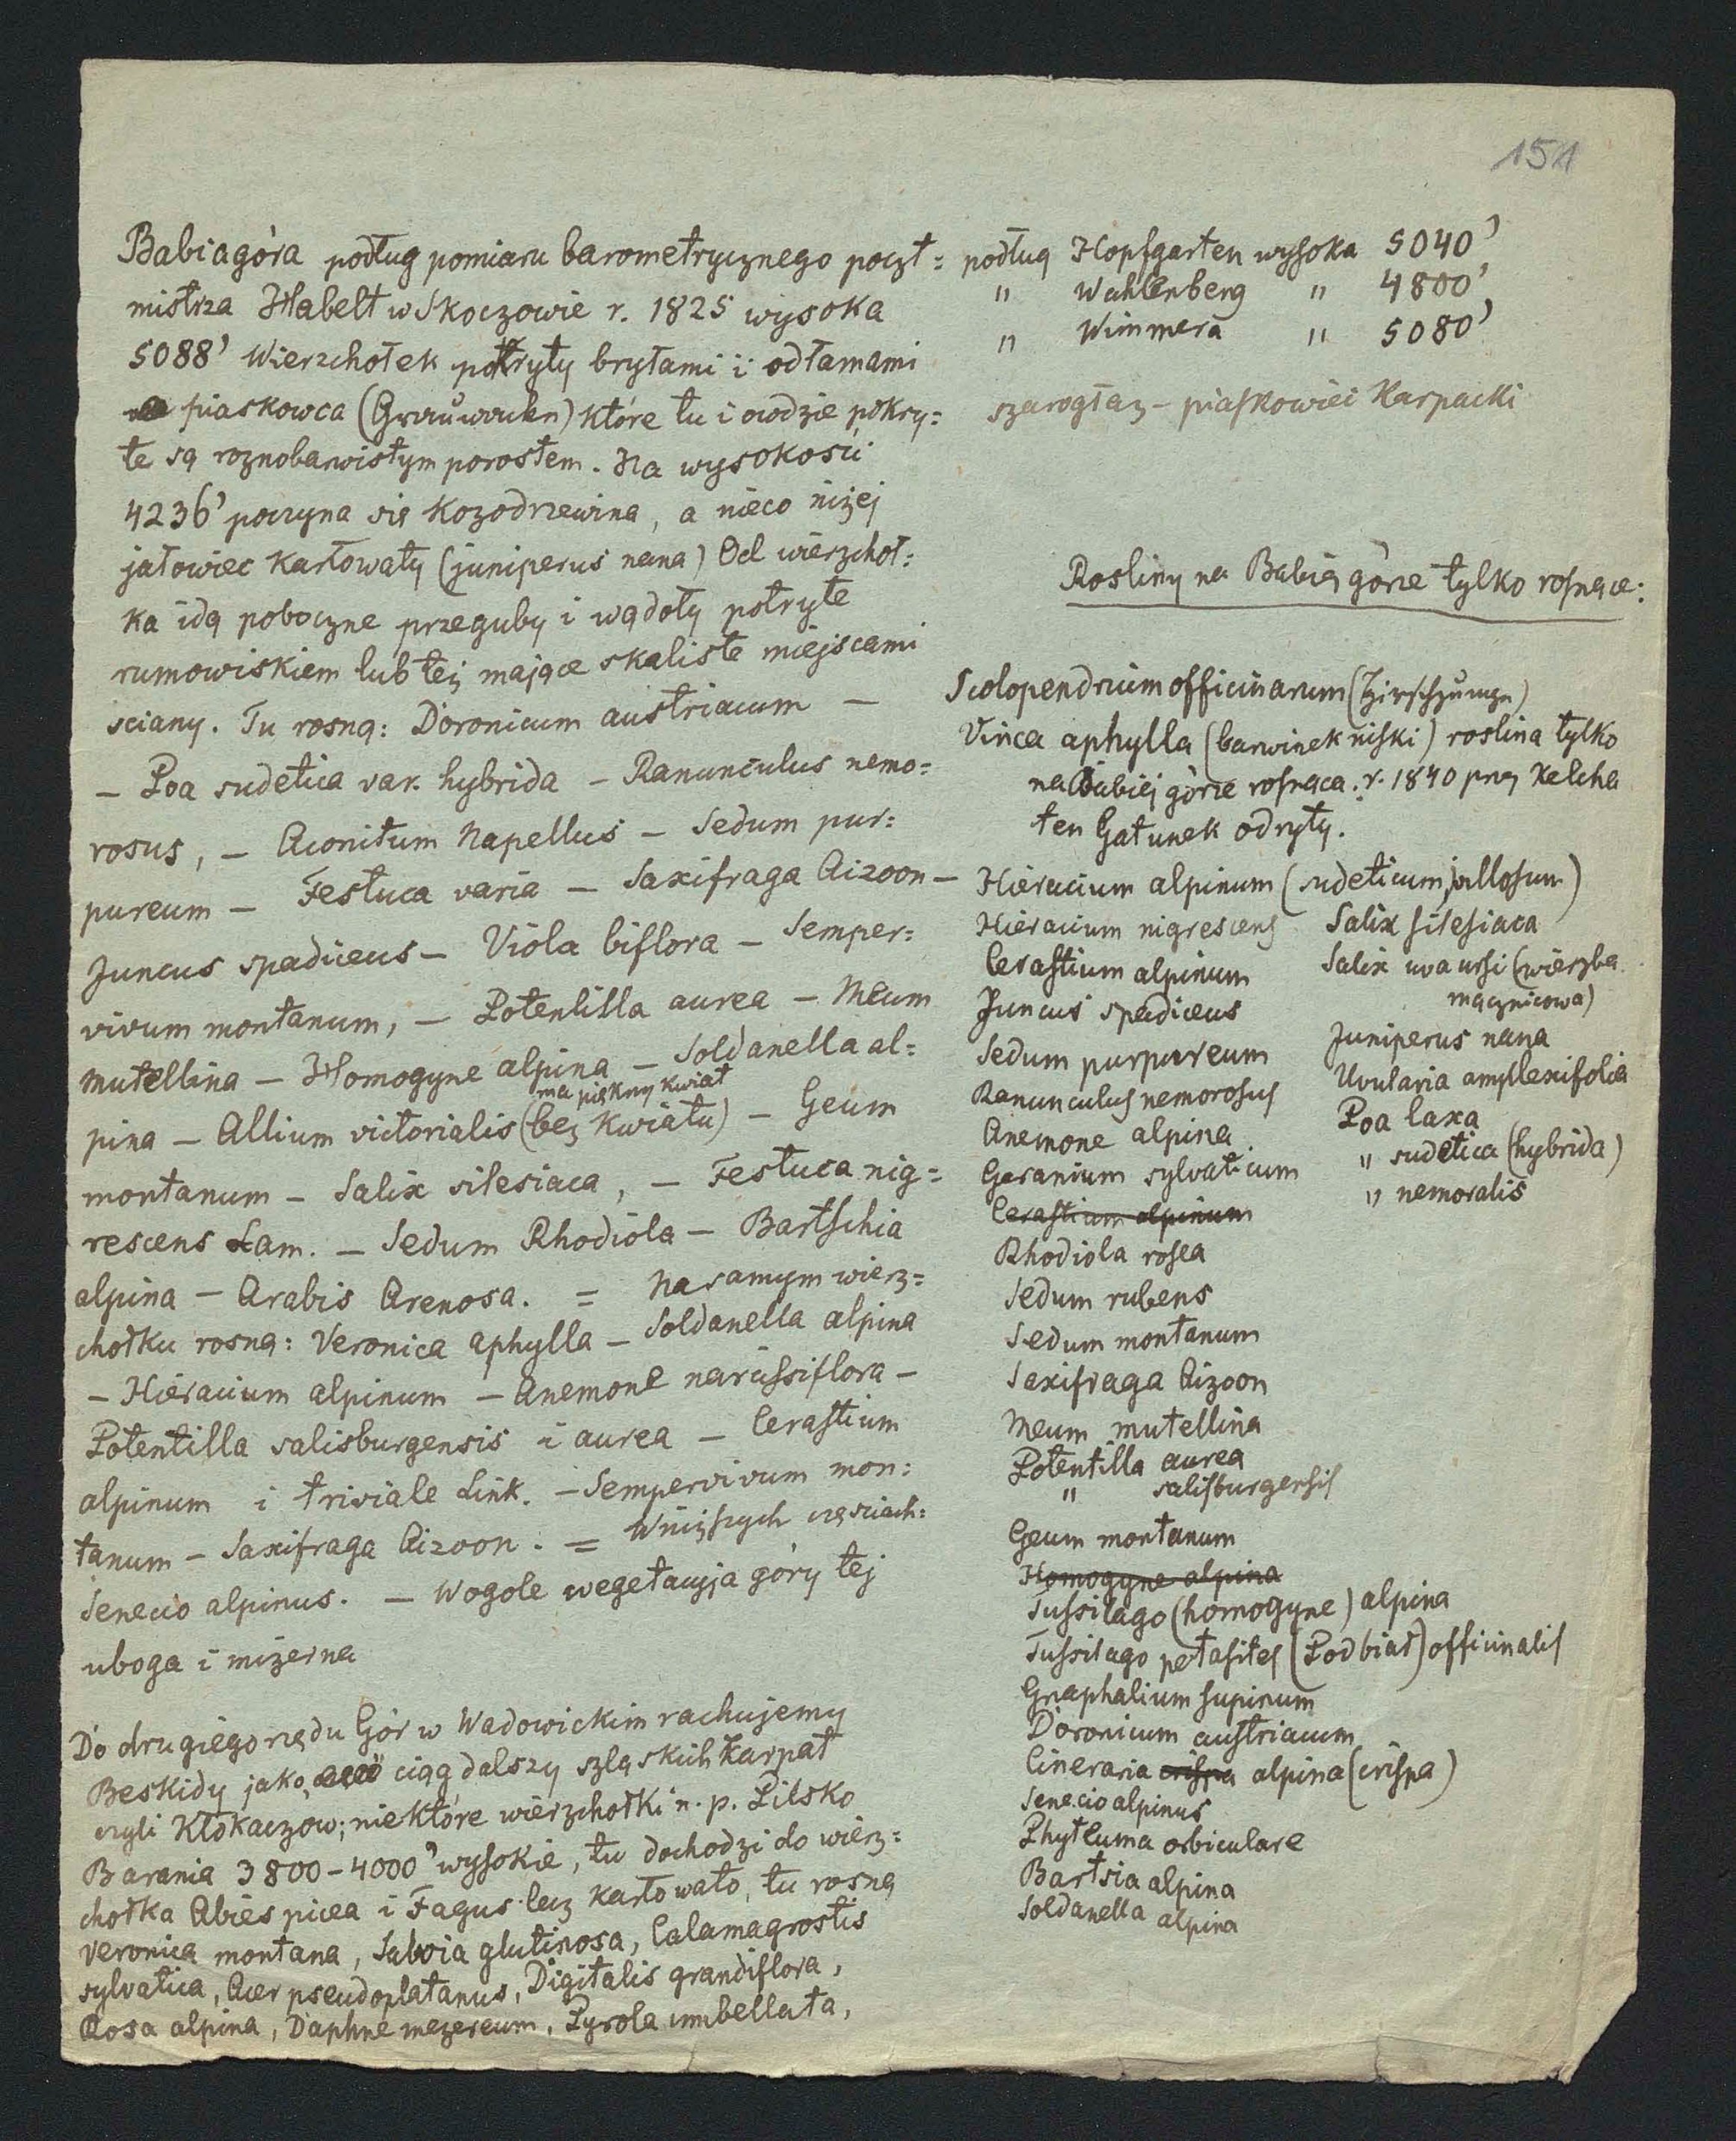 151
Babiagóra podług pomiaru barometrycznego poczt=
mistrza Habelt w Skoczowie r. 1825 wysoka
5088' Wierzchołek pokryty bryłami i odłamami
piaskowca (Grauwacken) które tu i owdzie pokry=
te są roznobarwistym porostem. Na wysokości
4236' poczyna się Kozodrzewina, a nieco niżej
jałowiec Karłowaty (juniperus nana) Od wierzchoł=
ka idą poboczne przeguby i wądoły potryte
rumowiskiem lub też mające skaliste miejscami
sciany. Tu rosną: Doronicum austriacum —
— Poa sudetica var. hybrida — Ranunculus nemo=
rosus, — Aconitum Napellus — Sedum pur=
pureum — Festuca varia — Saxifraga Aizoon —
Juncus spadiceus — Viola biflora — Semper=
vivum montanum, — Potentilla aurea — Meum
mutellina — Homogyne alpina — Soldanella al=
ma piękny kwiat
pina — Allium victorialis (bez Kwiatu) — Geum
montanum — Salix silesiaca, — Festuca nig=
rescens Lam. — Sedum Rhodiola — Bartschia
alpina — Arabis Arenosa. = Na samym wierz=
chołku rosną: Veronica aphylla — Soldanella alpina
— Hieracium alpinum — Anemone narcissiflora —
Potentilla salisburgensis i aurea — Cerastium
alpinum i triviale Link. — Sempervivum mon=
tanum — Saxifraga Aizoon. = W niższych częsciach:
Senecio alpinus. — Wogole wegetacyja góry tej
uboga i mizerna
Do drugiego rzędu Gór w Wadowickim rachujemy
Beskidy jako ciąg dalszy szląskich Karpat
czyli Kłokaczow; niektóre wierzchołki n. p. Pilsko
Barania 3800–4000' wysokie, tu dochodzi do wierz=
chołka Abies picea i Fagus lecz karłowato, tu rosną
Veronica montana, Salvia glutinosa, Calamagrostis
sylvatica, Acer pseudoplatanus, Digitalis grandiflora,
Rosa alpina, Daphne mezereum, Pyrola umbellata,
podług Hopfgarten wysoka 5040'
" Wahlenberg " 4800'
" Wimmera " 5080'
szarogłaz — piaskowiec Karpacki
Rosliny na Babiej górze tylko rosnące:
Scolopendrium officinarum (Hirschzunge)
Vinca aphylla (barwinek niski) roslina tylko
na Babiej górze rosnąca. r. 1840 przez Kelcha
ten Gatunek odryty.
Hieracium alpinum (sudeticum, villosum)
Hieracium nigrescens
Cerastium alpinum
Juncus spadiceus
Sedum purpureum
Ranunculus nemorosus
Anemone alpina
Geranium sylvaticum
Cerastium alpinum
Rhodiola rosea
Sedum rubens
Sedum montanum
Saxifraga Aizoon
Meum mutellina
Potentilla aurea
" salisburgensis
Geum montanum
Homogyne alpina
Tussilago (homogyne) alpina
Tussilago petasites (Podbiał) officinalis
Gnaphalium supinum
Doronicum austriacum
Cineraria crispa alpina (crispa)
Senecio alpinus
Phyteuma orbiculare
Bartsia alpina
Soldanella alpina
Salix silesiaca
Salix uva ursi (wierzba
mącznicowa)
Juniperus nana
Uvularia amplexifolia
Poa laxa
" sudetica (hybrida)
" nemoralis